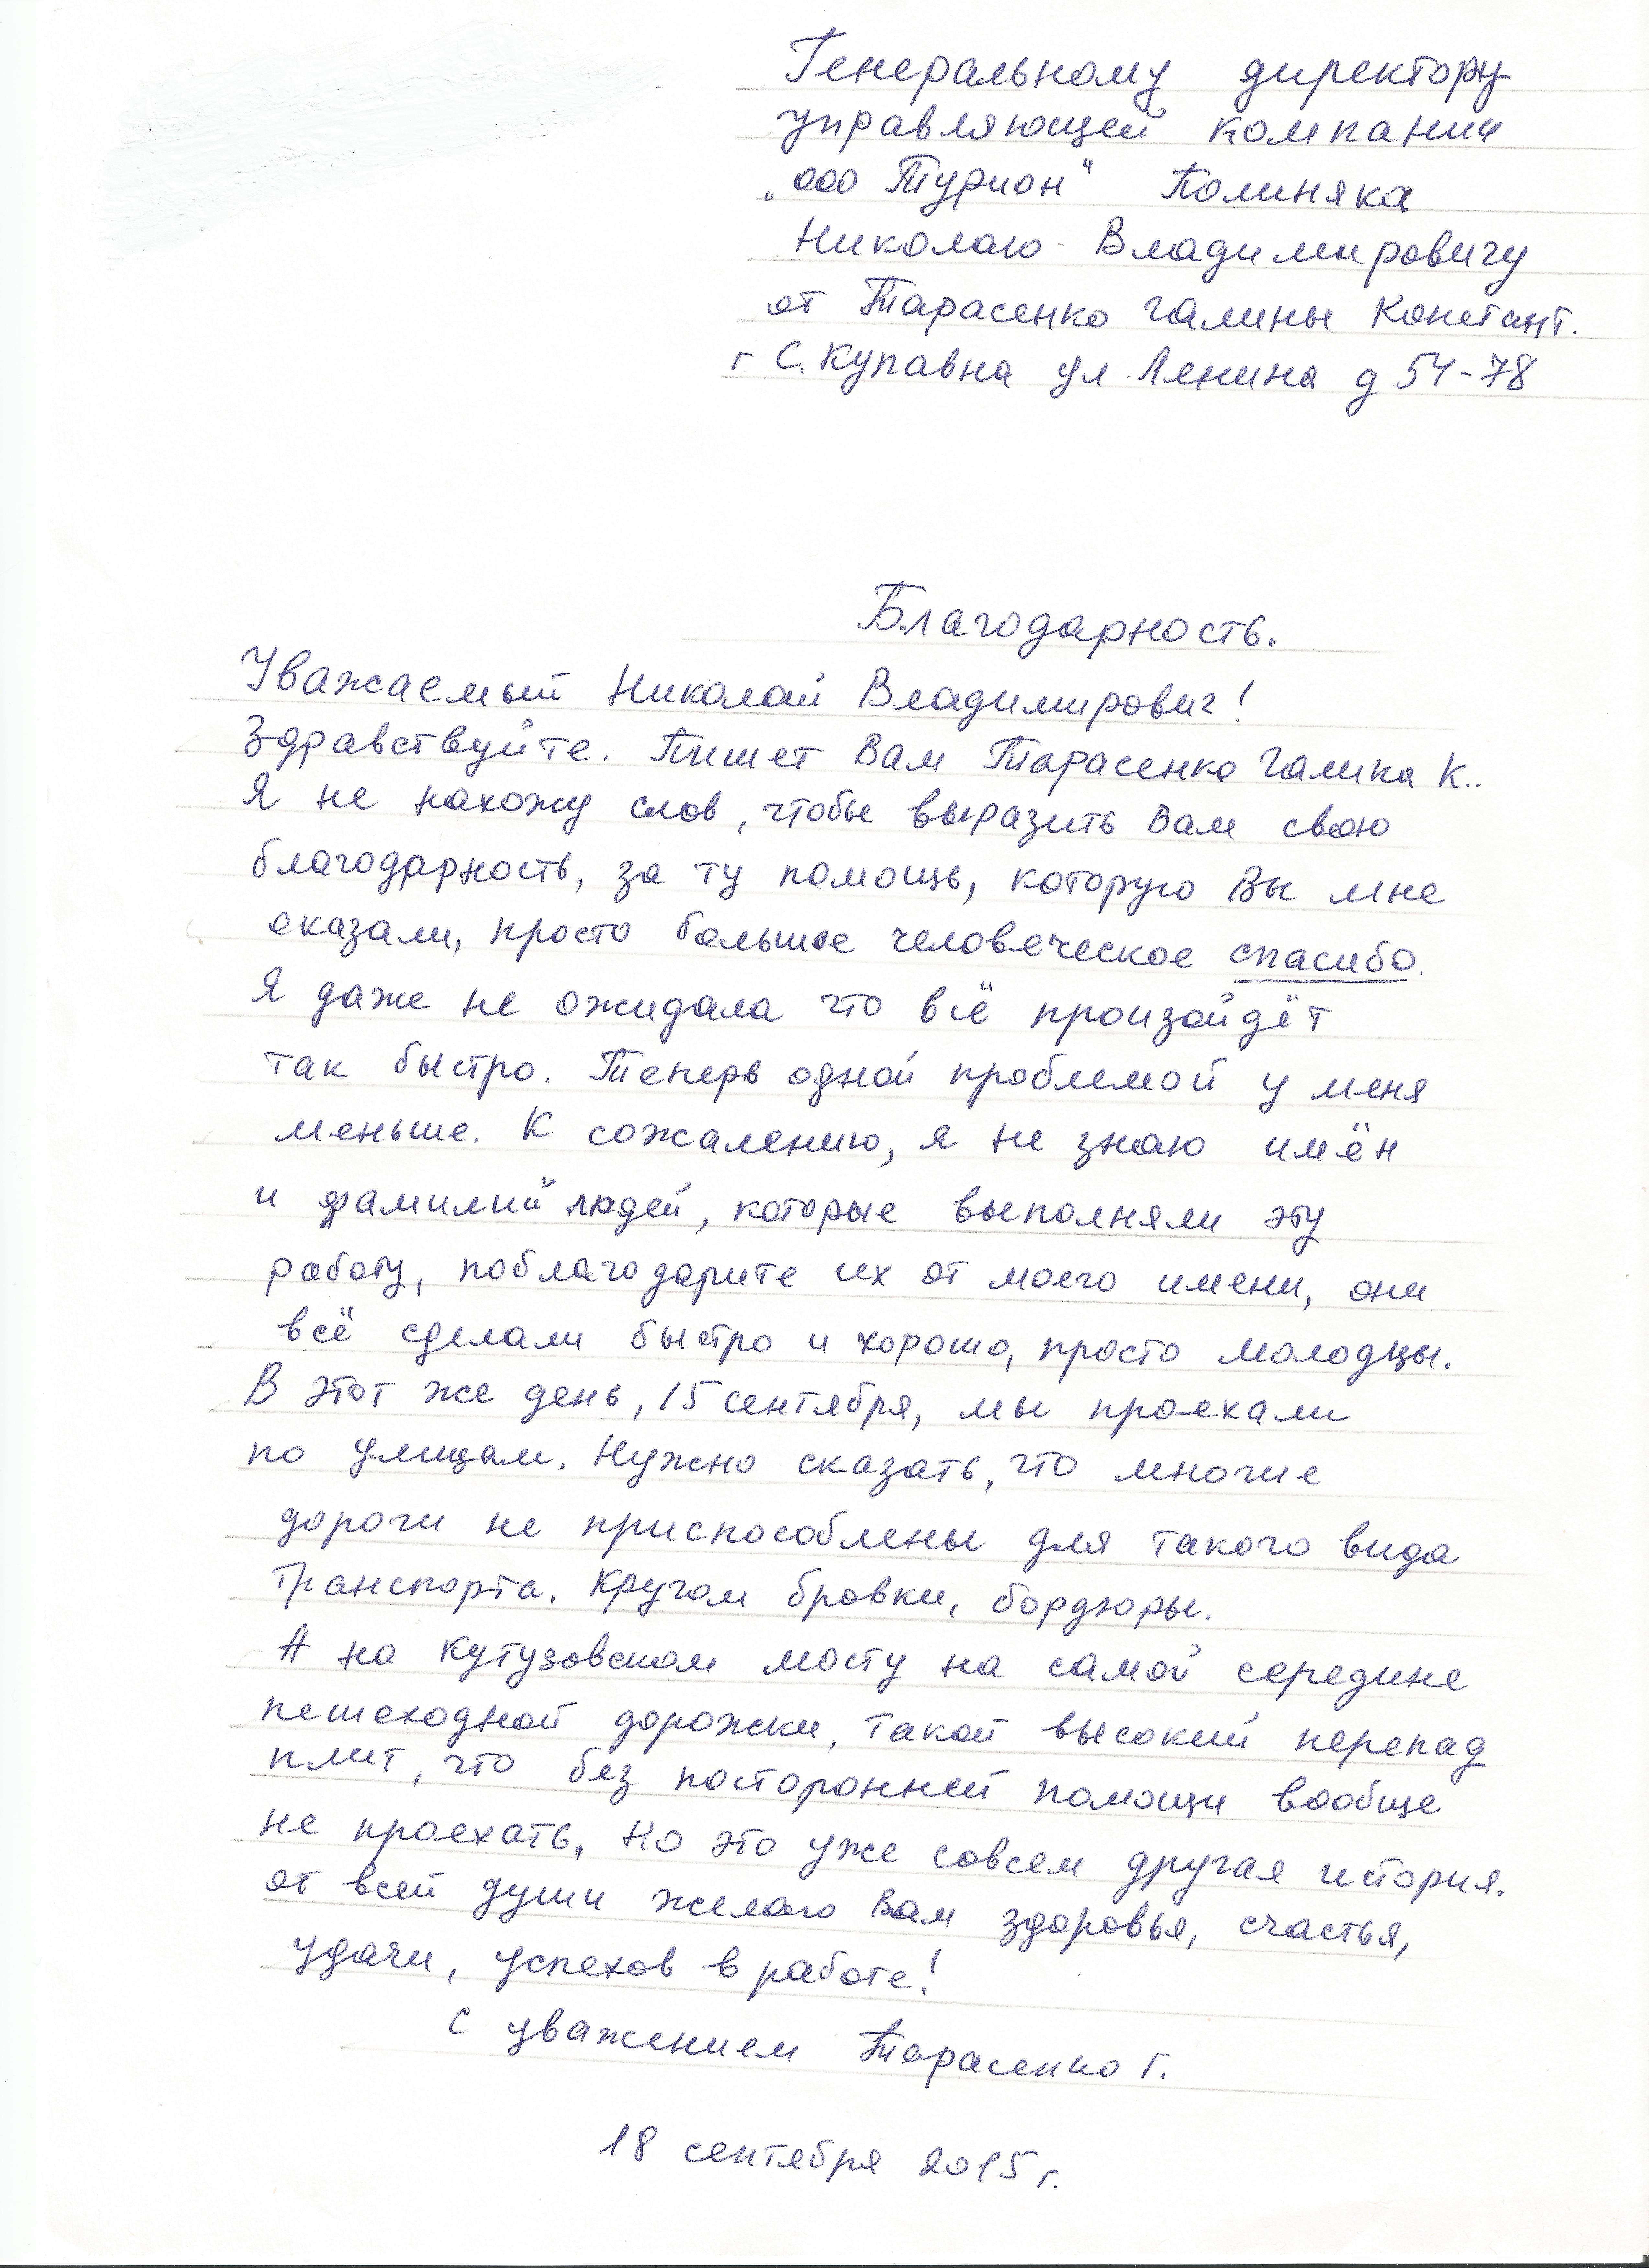 Генеральному директору
управляющей компании
„ООО Турион" Полиняка
Николаю Владимировичу
от Тарасенко Галины Констант.
г С. Купавна ул Ленина д 54-78
Благодарность.
Уважаемый Николай Владимирович!
Здравствуйте. Пишет Вам Тарасенко Галина К..
Я не нахожу слов, чтобы выразить Вам свою
благодарность, за ту помощь, которую Вы мне
оказали, просто большое человеческое спасибо.
Я даже не ожидала что всё произойдёт
так быстро. Теперь одной проблемой у меня
меньше. К сожалению, я не знаю имён
и фамилий людей, которые выполняли эту
работу, поблагодарите их от моего имени, они
всё сделали быстро и хорошо, просто молодцы.
В этот же день, 15 сентября, мы проехали
по улицам. Нужно сказать, что многие
дороги не приспособлены для такого вида
транспорта. Кругом бровки, бордюры.
А на Кутузовском мосту на самой середине
пешеходной дорожки, такой высокий перепад
плит, что без посторонней помощи вообще
не проехать. Но это уже совсем другая история.
от всей души желаю Вам здоровья, счастья,
удачи, успехов в работе!
С уважением Тарасенко Г.
18 сентября 2015 г.